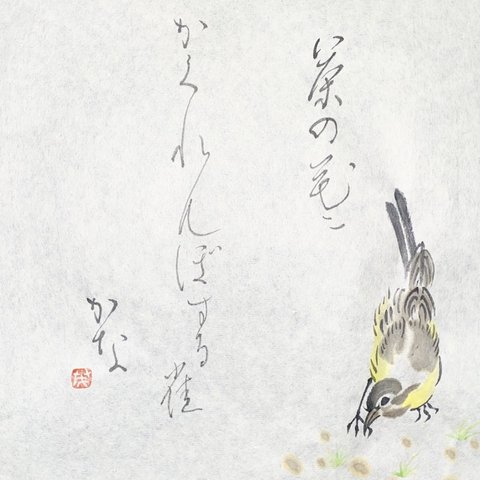 茶の花に
かくれんぼする雀
かな